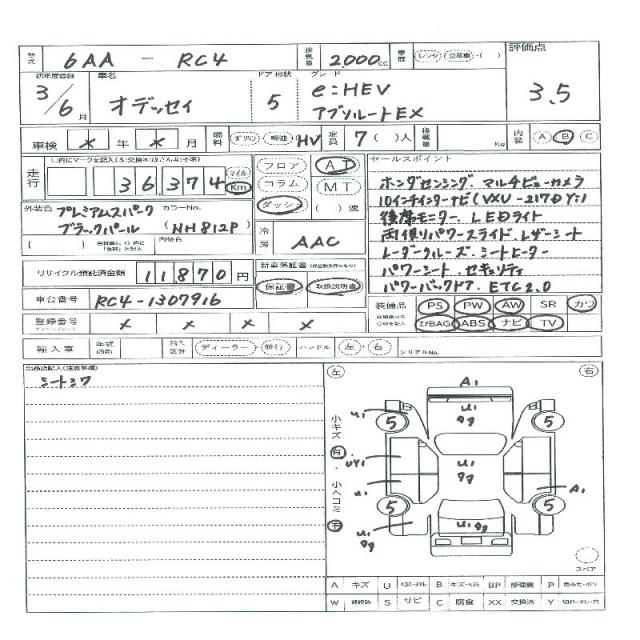 型式 6AA - RC4 排気量 2,000cc 車歴 レンタ・営業車・( ) 評価点
初年度登録 車名 ドア 形状 グレード 3.5
3/6月 オデッセイ 5 e:HEV
アブソルートEX
車検 ＊ 年 ＊ 月 燃料 ガソリン・軽油 HV 定員 7 ( )人 積載量 Kg 内装 A B C
走行 36,374 マイル Km フロア AT セールスポイント
コラム MT ホンダセンシング. マルチビューカメラ
外装色 プレミアムスパーク カラーNo. ダッシュ ( )速 10インチインターナビ(VXU-217DYi)
ブラックパール (NH812P) 後席モニター. LEDライト
( ) 内装色 冷房 AAC 両側パワースライド. レザーシート
レーダークルーズ. シートヒーター
リサイクル預託済金額 11870円 新車保証書 パワーシート. セキュリティ
保証書 取扱説明書 パワーバックドア. ETC2.0
車台番号 RC4-1307916 装備品 PS PW AW SR カワ
登録番号 × × × × エアBAG ABS ナビ TV
輸入車 年式 ディーラー・並行 ハンドル 左・右 シリアルNo.
出品店記入(注意事項)
シートシワ
左 右
A1
U1 U1
gg
5 5
小キズ 有・小ヘコミ
UY1 U1
gg
U1 A1
5 5
U1 U1 gg
gg
スペア
A キズ U B BP 修理跡 P
W S サビ C 腐食 XX 交換済 Y